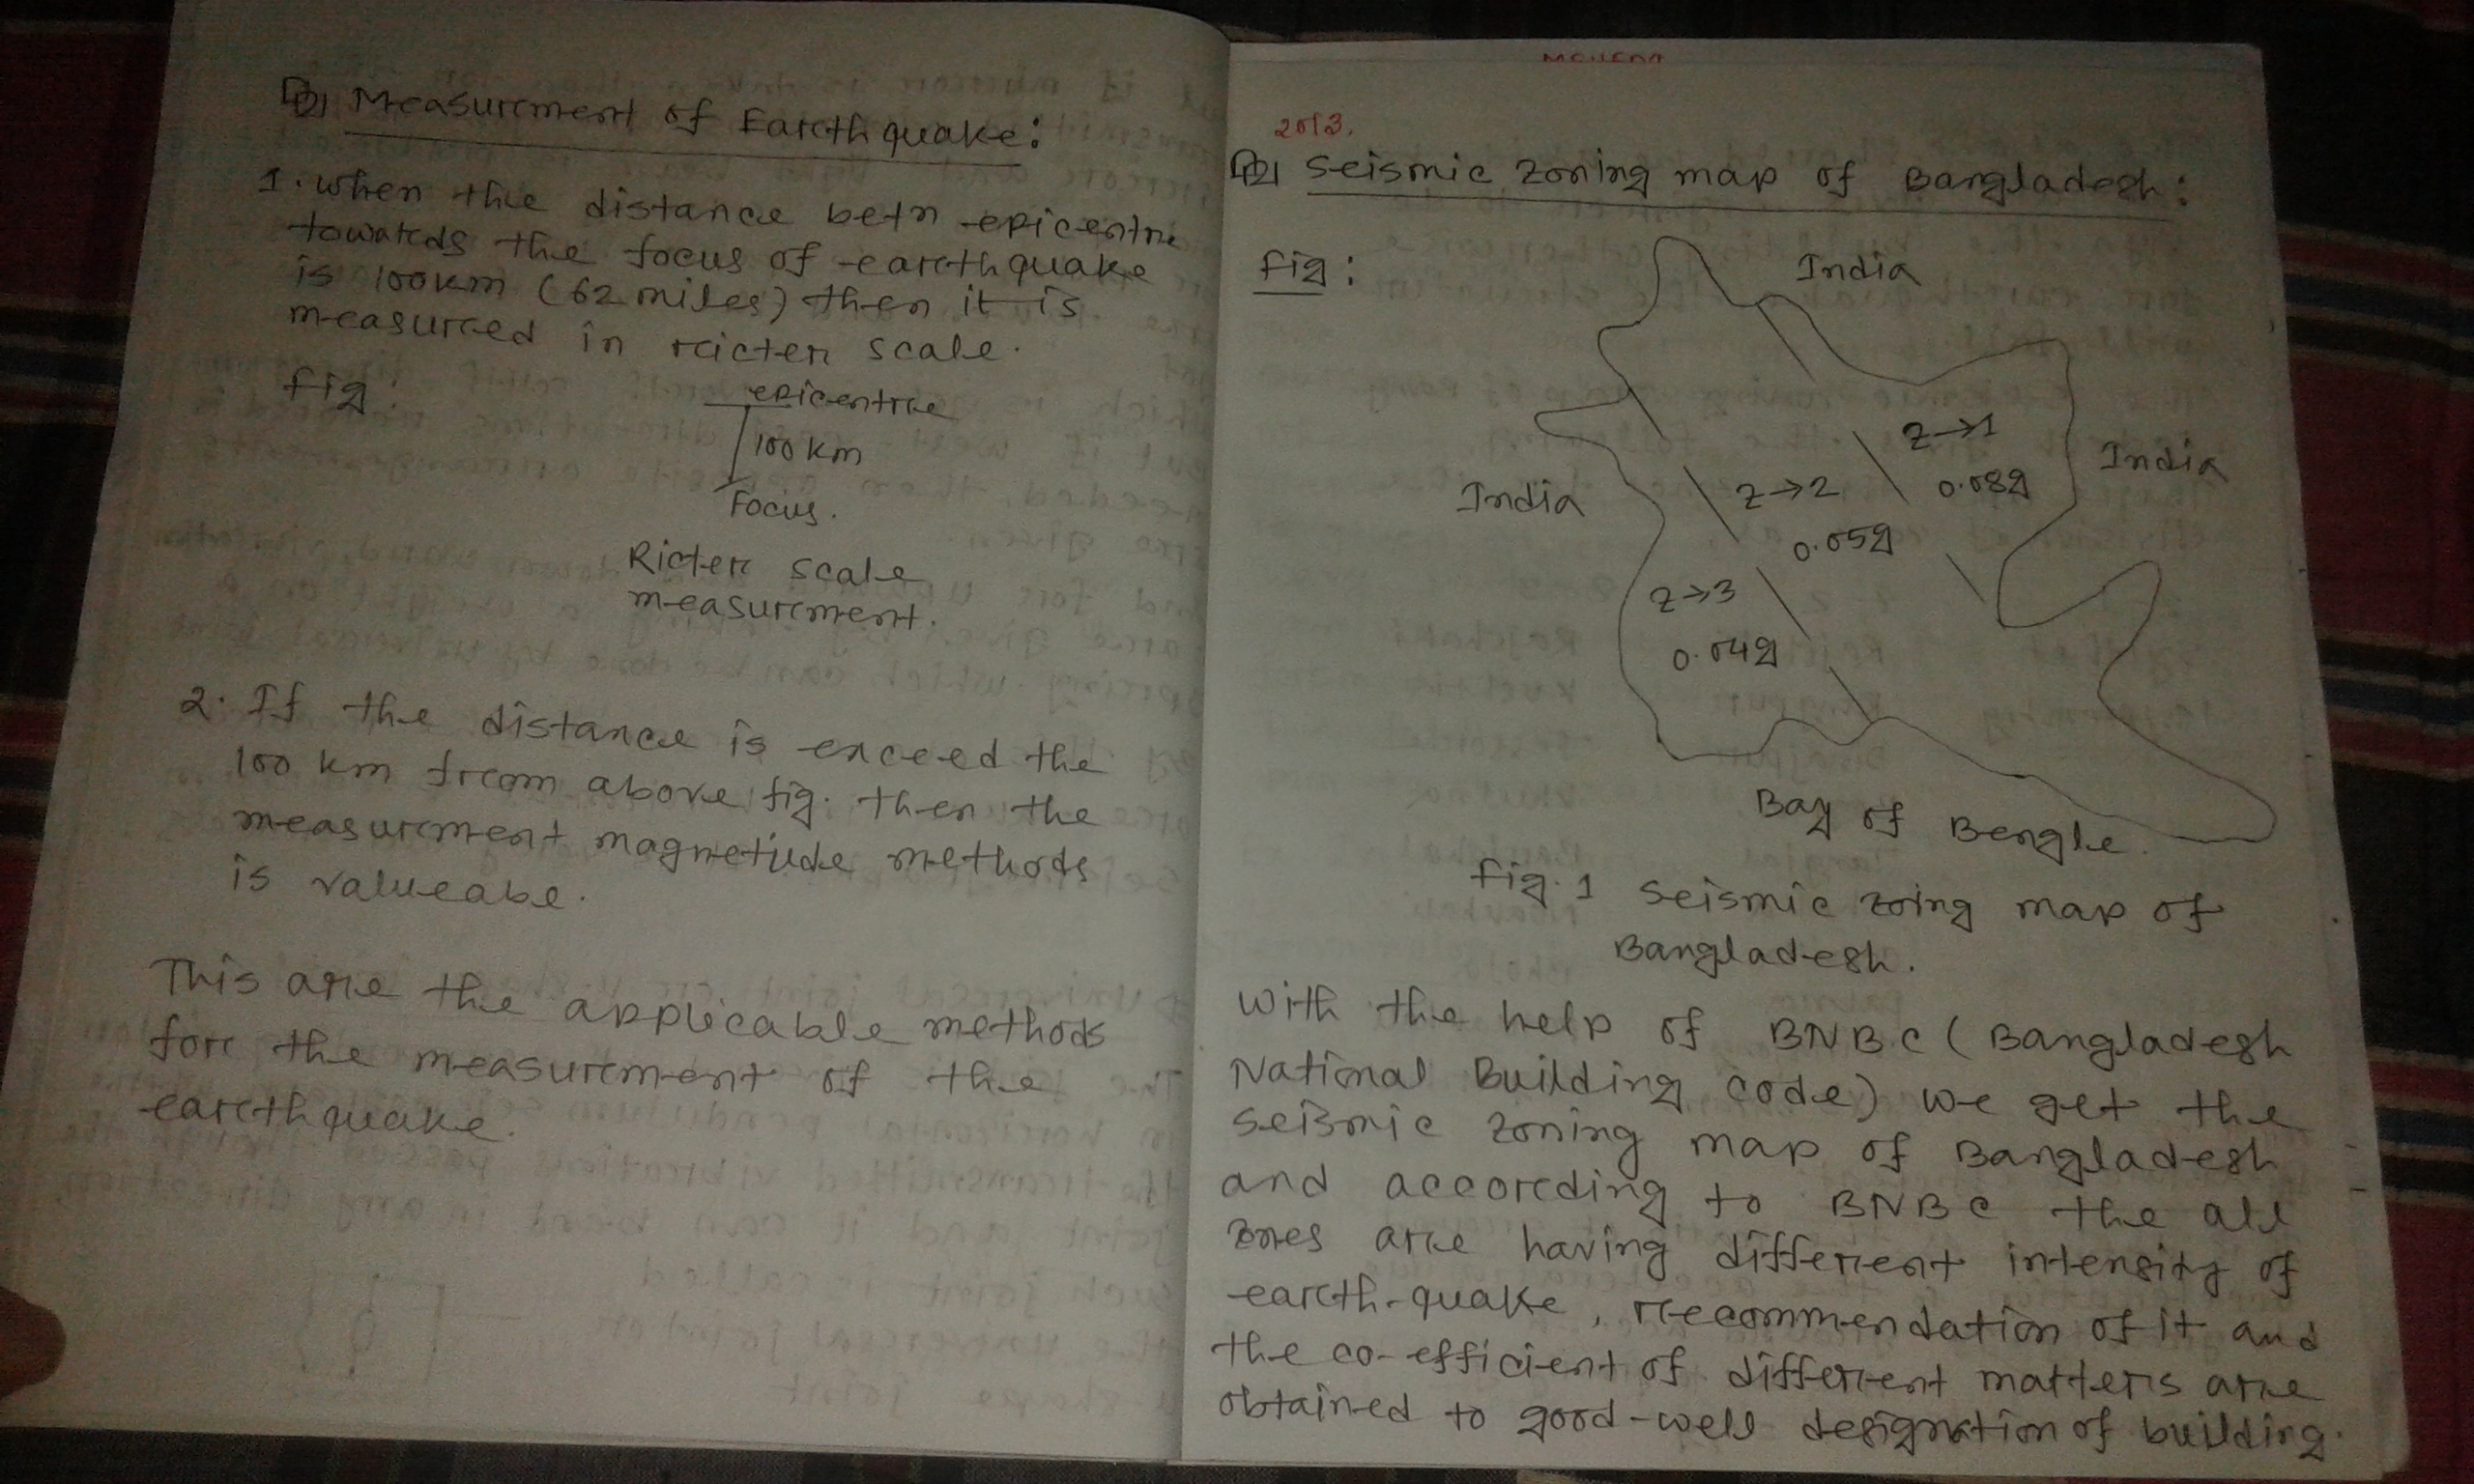 Measurement of Earthquake:
1. when the distance betn epicentre
towards the focus of earthquake
is 100km (62 miles) then it is
measured in ricter scale.
fig:
epicentre
100 km
Focus.
Ricter scale
measurement.
2. If the distance is exceed the
100 km from above fig. then the
measurement magnetude methods
is valueabe.
This are the applicable methods
for the measurement of the
earthquake.
2013.
Seismic zoning map of Bangladesh:
fig:
India
India
India
Z→1
0.08g
Z→2
0.05g
Z→3
0.04g
Bay of Bengle.
fig. 1 Seismic zoing map of
Bangladesh.
With the help of BNBC (Bangladesh
National Building code) we get the
seismic zoning map of Bangladesh
and according to BNBC the all
zones are having different intensity of
earth-quake, recommendation of it and
the co-efficient of different matters are
obtained to good-well designation of building.